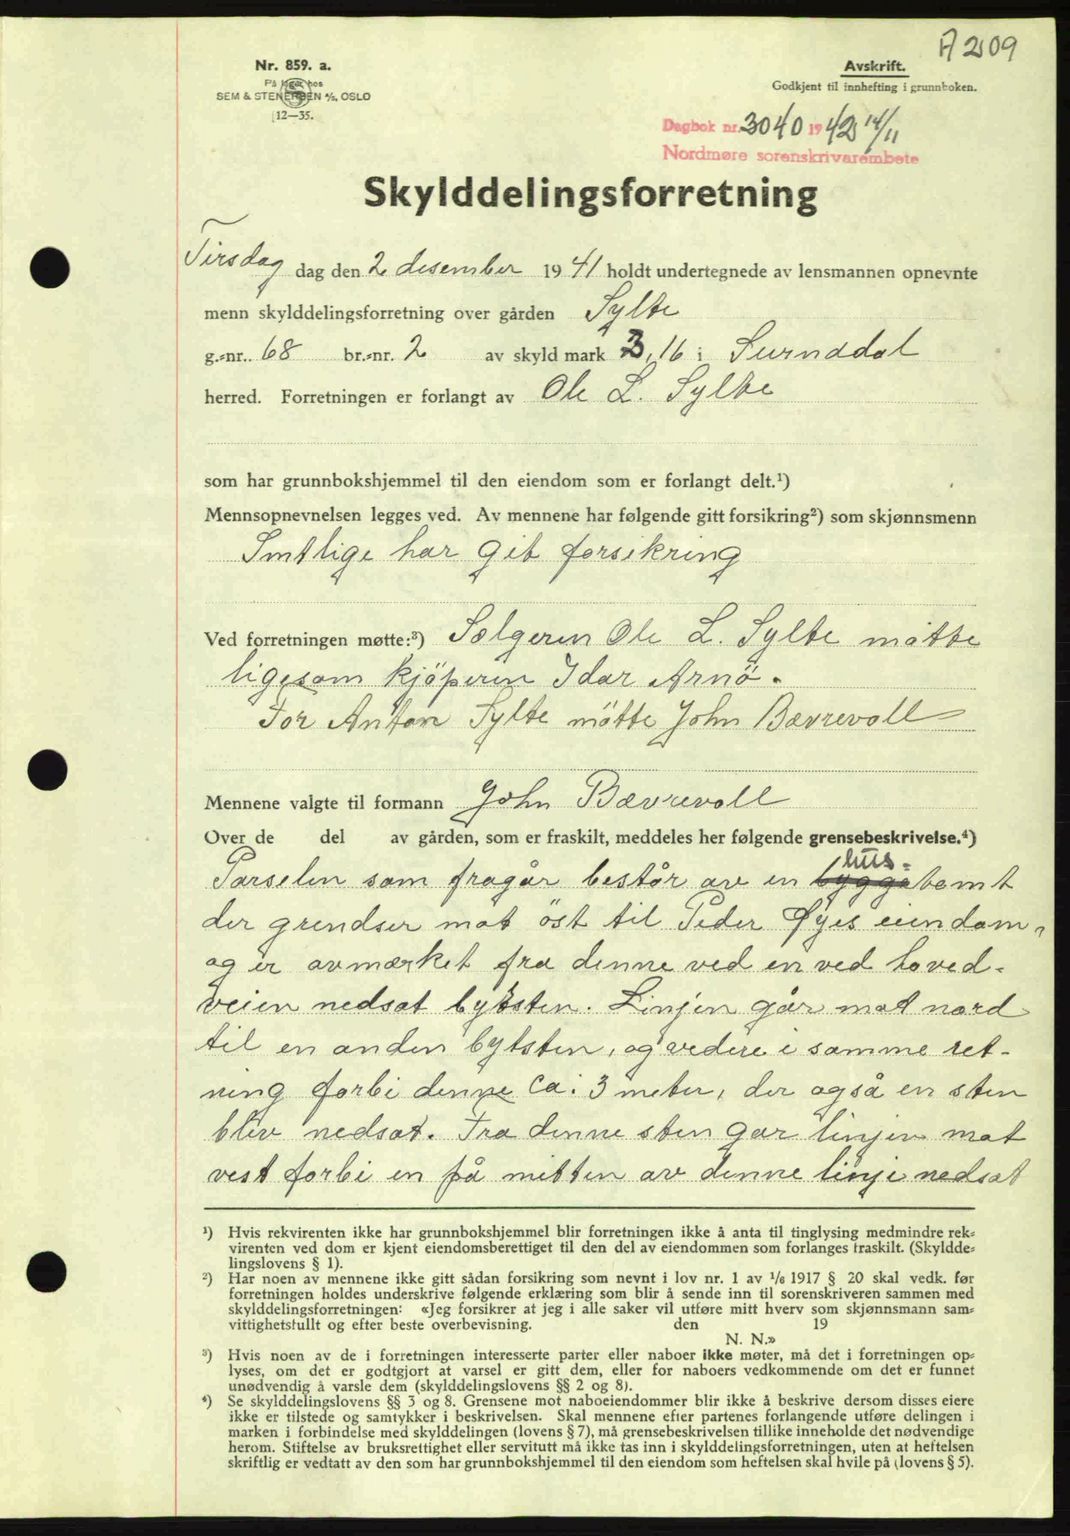 A 209
Nr. 859. a.
På lager hos
SEM & STENERSEN A/S, OSLO
12—35.
Avskrift.
Godkjent til innhefting i grunnboken.
Dagbok nr. 3040 1942 14/11
Nordmøre sorenskrivarembete
Skylddelingsforretning
Tirsdag dag den 2 desember 19 41 holdt undertegnede av lensmannen opnevnte
menn skylddelingsforretning over gården Sylte
g.-nr. 68 br.-nr. 2 av skyld mark 3,16 i Surnddal
herred. Forretningen er forlangt av Ole L. Sylte
som har grunnbokshjemmel til den eiendom som er forlangt delt.¹)
Mennsopnevnelsen legges ved. Av mennene har følgende gitt forsikring²) som skjønnsmenn
Smtlige har git forsikring
Ved forretningen møtte:³) Sælgeren Ole L. Sylte møtte
ligesom kjöperen Idar Arnö.
For Anton Sylte mötte John Bævrevoll
Mennene valgte til formann John Bævrevoll
Over de del av gården, som er fraskilt, meddeles her følgende grensebeskrivelse.⁴)
Parselen som fragår består av en bygge hus-tomt
der grendser mot öst til Peder Øyes eiendom,
og er avmærket fra denne ved en ved hoved-
veien nedsat bytsten. Linjen går mot nord
til en anden bytsten, og vedere i samme ret-
ning forbi denne ca. 3 meter, der også en sten
blev nedsat. Fra denne sten gar linjen mot
vest forbi en på mitten av denne linje nedsat
¹) Hvis rekvirenten ikke har grunnbokshjemmel blir forretningen ikke å anta til tinglysing medmindre rek-
virenten ved dom er kjent eiendomsberettiget til den del av eiendommen som forlanges fraskilt. (Skyldde-
lingslovens § 1).
²) Har noen av mennene ikke gitt sådan forsikring som nevnt i lov nr. 1 av 1/6 1917 § 20 skal vedk. før
forretningen holdes underskrive følgende erklæring som blir å sende inn til sorenskriveren sammen med
skylddelingsforretningen: «Jeg forsikrer at jeg i alle saker vil utføre mitt hverv som skjønnsmann sam-
vittighetsfullt og efter beste overbevisning. den 19
N. N.»
³) Hvis noen av de i forretningen interesserte parter eller naboer ikke møter, må det i forretningen op-
lyses, om det er godtgjort at varsel er gitt dem, eller for naboers vedkommende om det er funnet
unødvendig å varsle dem (skylddelingslovens §§ 2 og 8).
⁴) Se skylddelingslovens §§ 3 og 8. Grensene mot naboeiendommer blir ikke å beskrive dersom disses eiere
ikke er tilstede og samtykker i beskrivelsen. Skal mennene efter partenes forlangende utføre delingen i
marken i forbindelse med skylddelingen (lovens § 7), må grensebeskrivelsen tillike inneholde det nødvendige
herom. Stiftelse av bruksrettighet eller servitutt må ikke tas inn i skylddelingsforretningen, uten at heftelsen
skriftlig er vedtatt av den som har grunnbokshjemmel til den eiendom som heftelsen skal hvile på (lovens § 5).